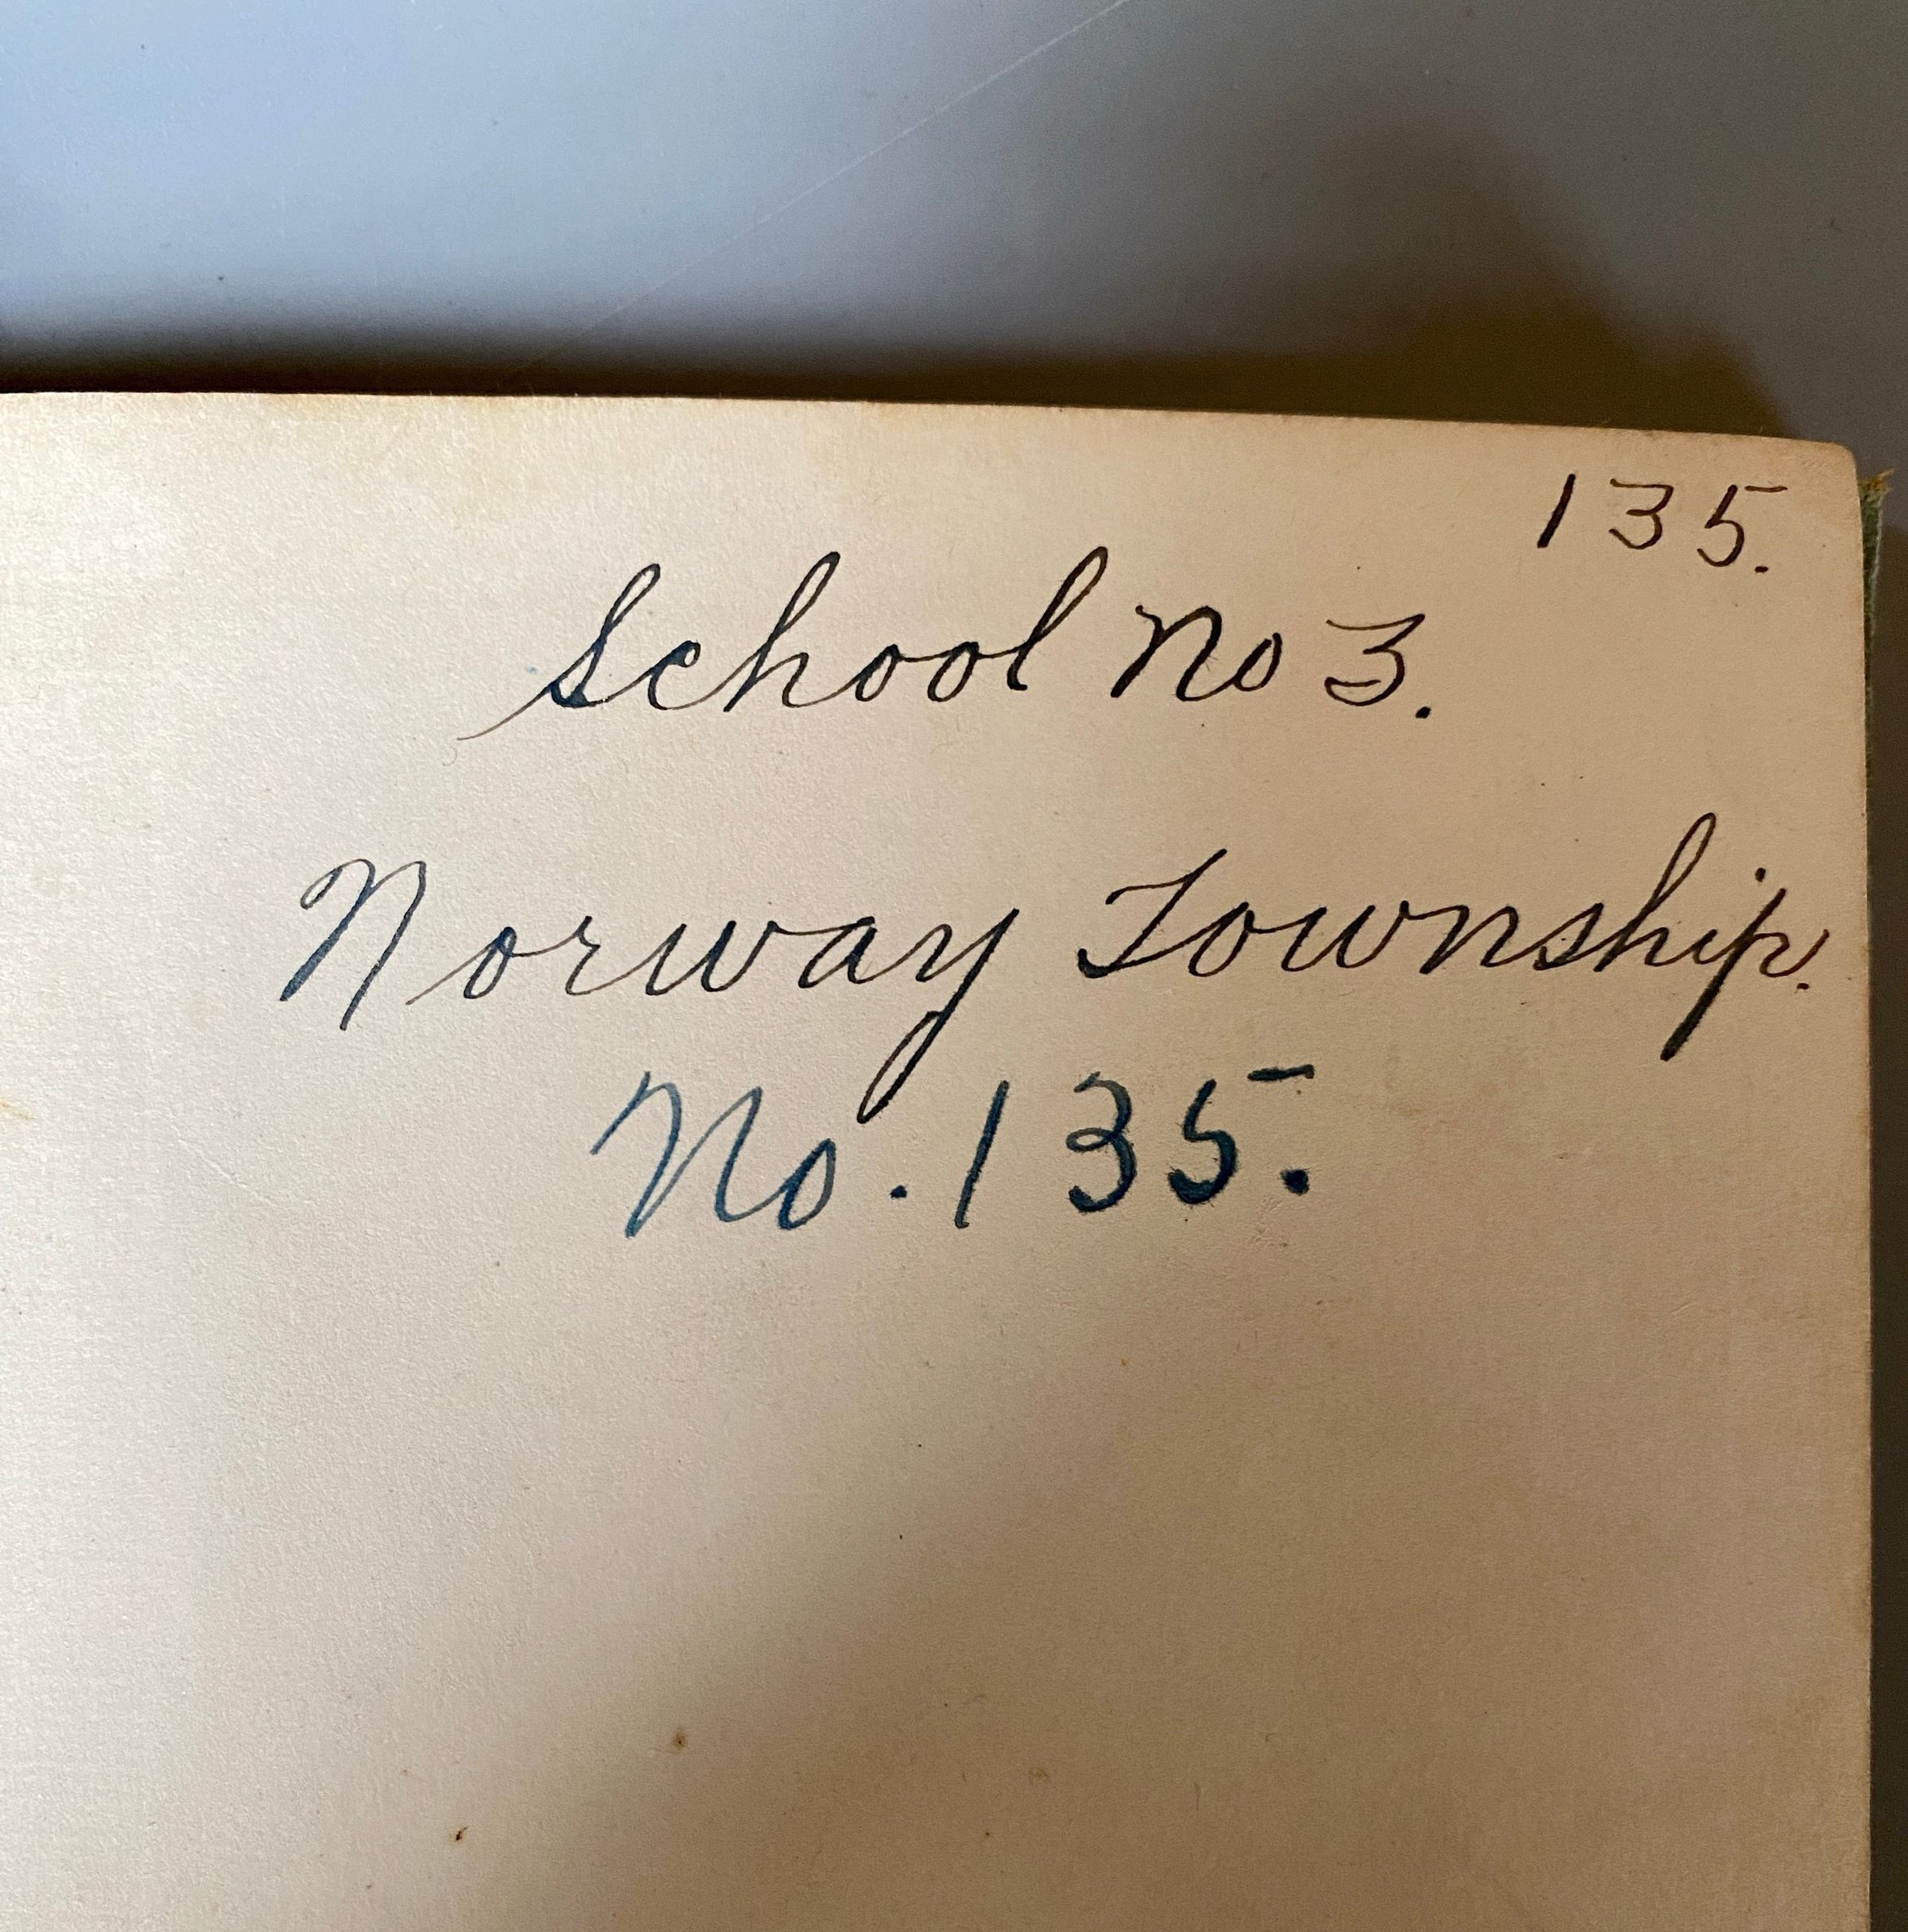 135.
School No 3.
Norway Township.
No. 135.